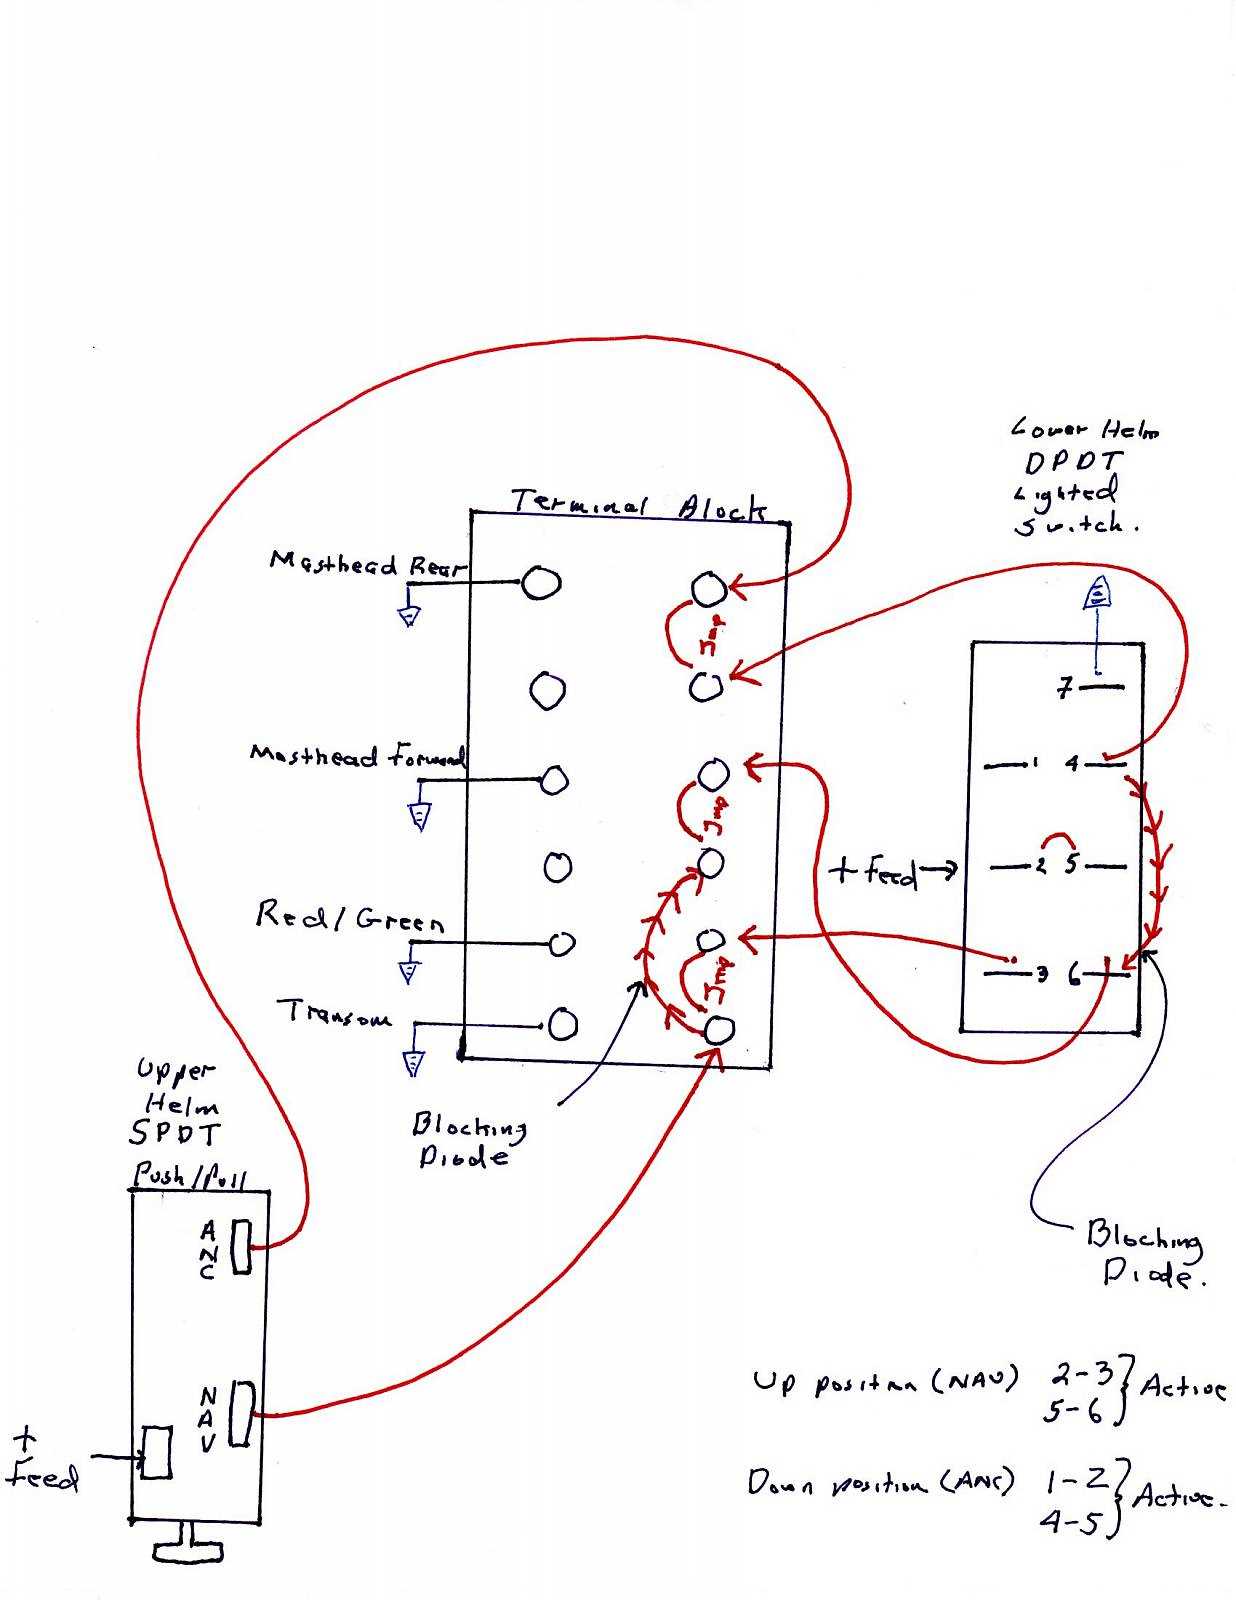 Lower Helm
DPDT
Lighted
Switch.
Terminal Block
Masthead Rear
Jmp
7
Masthead Forward
1 4
Jmp
+ Feed
2 5
Red/Green
Jmp
3 6
Transom
Upper
Helm
SPDT
Push/Pull
Blocking
Diode
ANC
Blocking
Diode.
NAV
+
Feed
Up position (NAV) 2-3 } Active
5-6
Down position (ANC) 1-2 } Active.
4-5